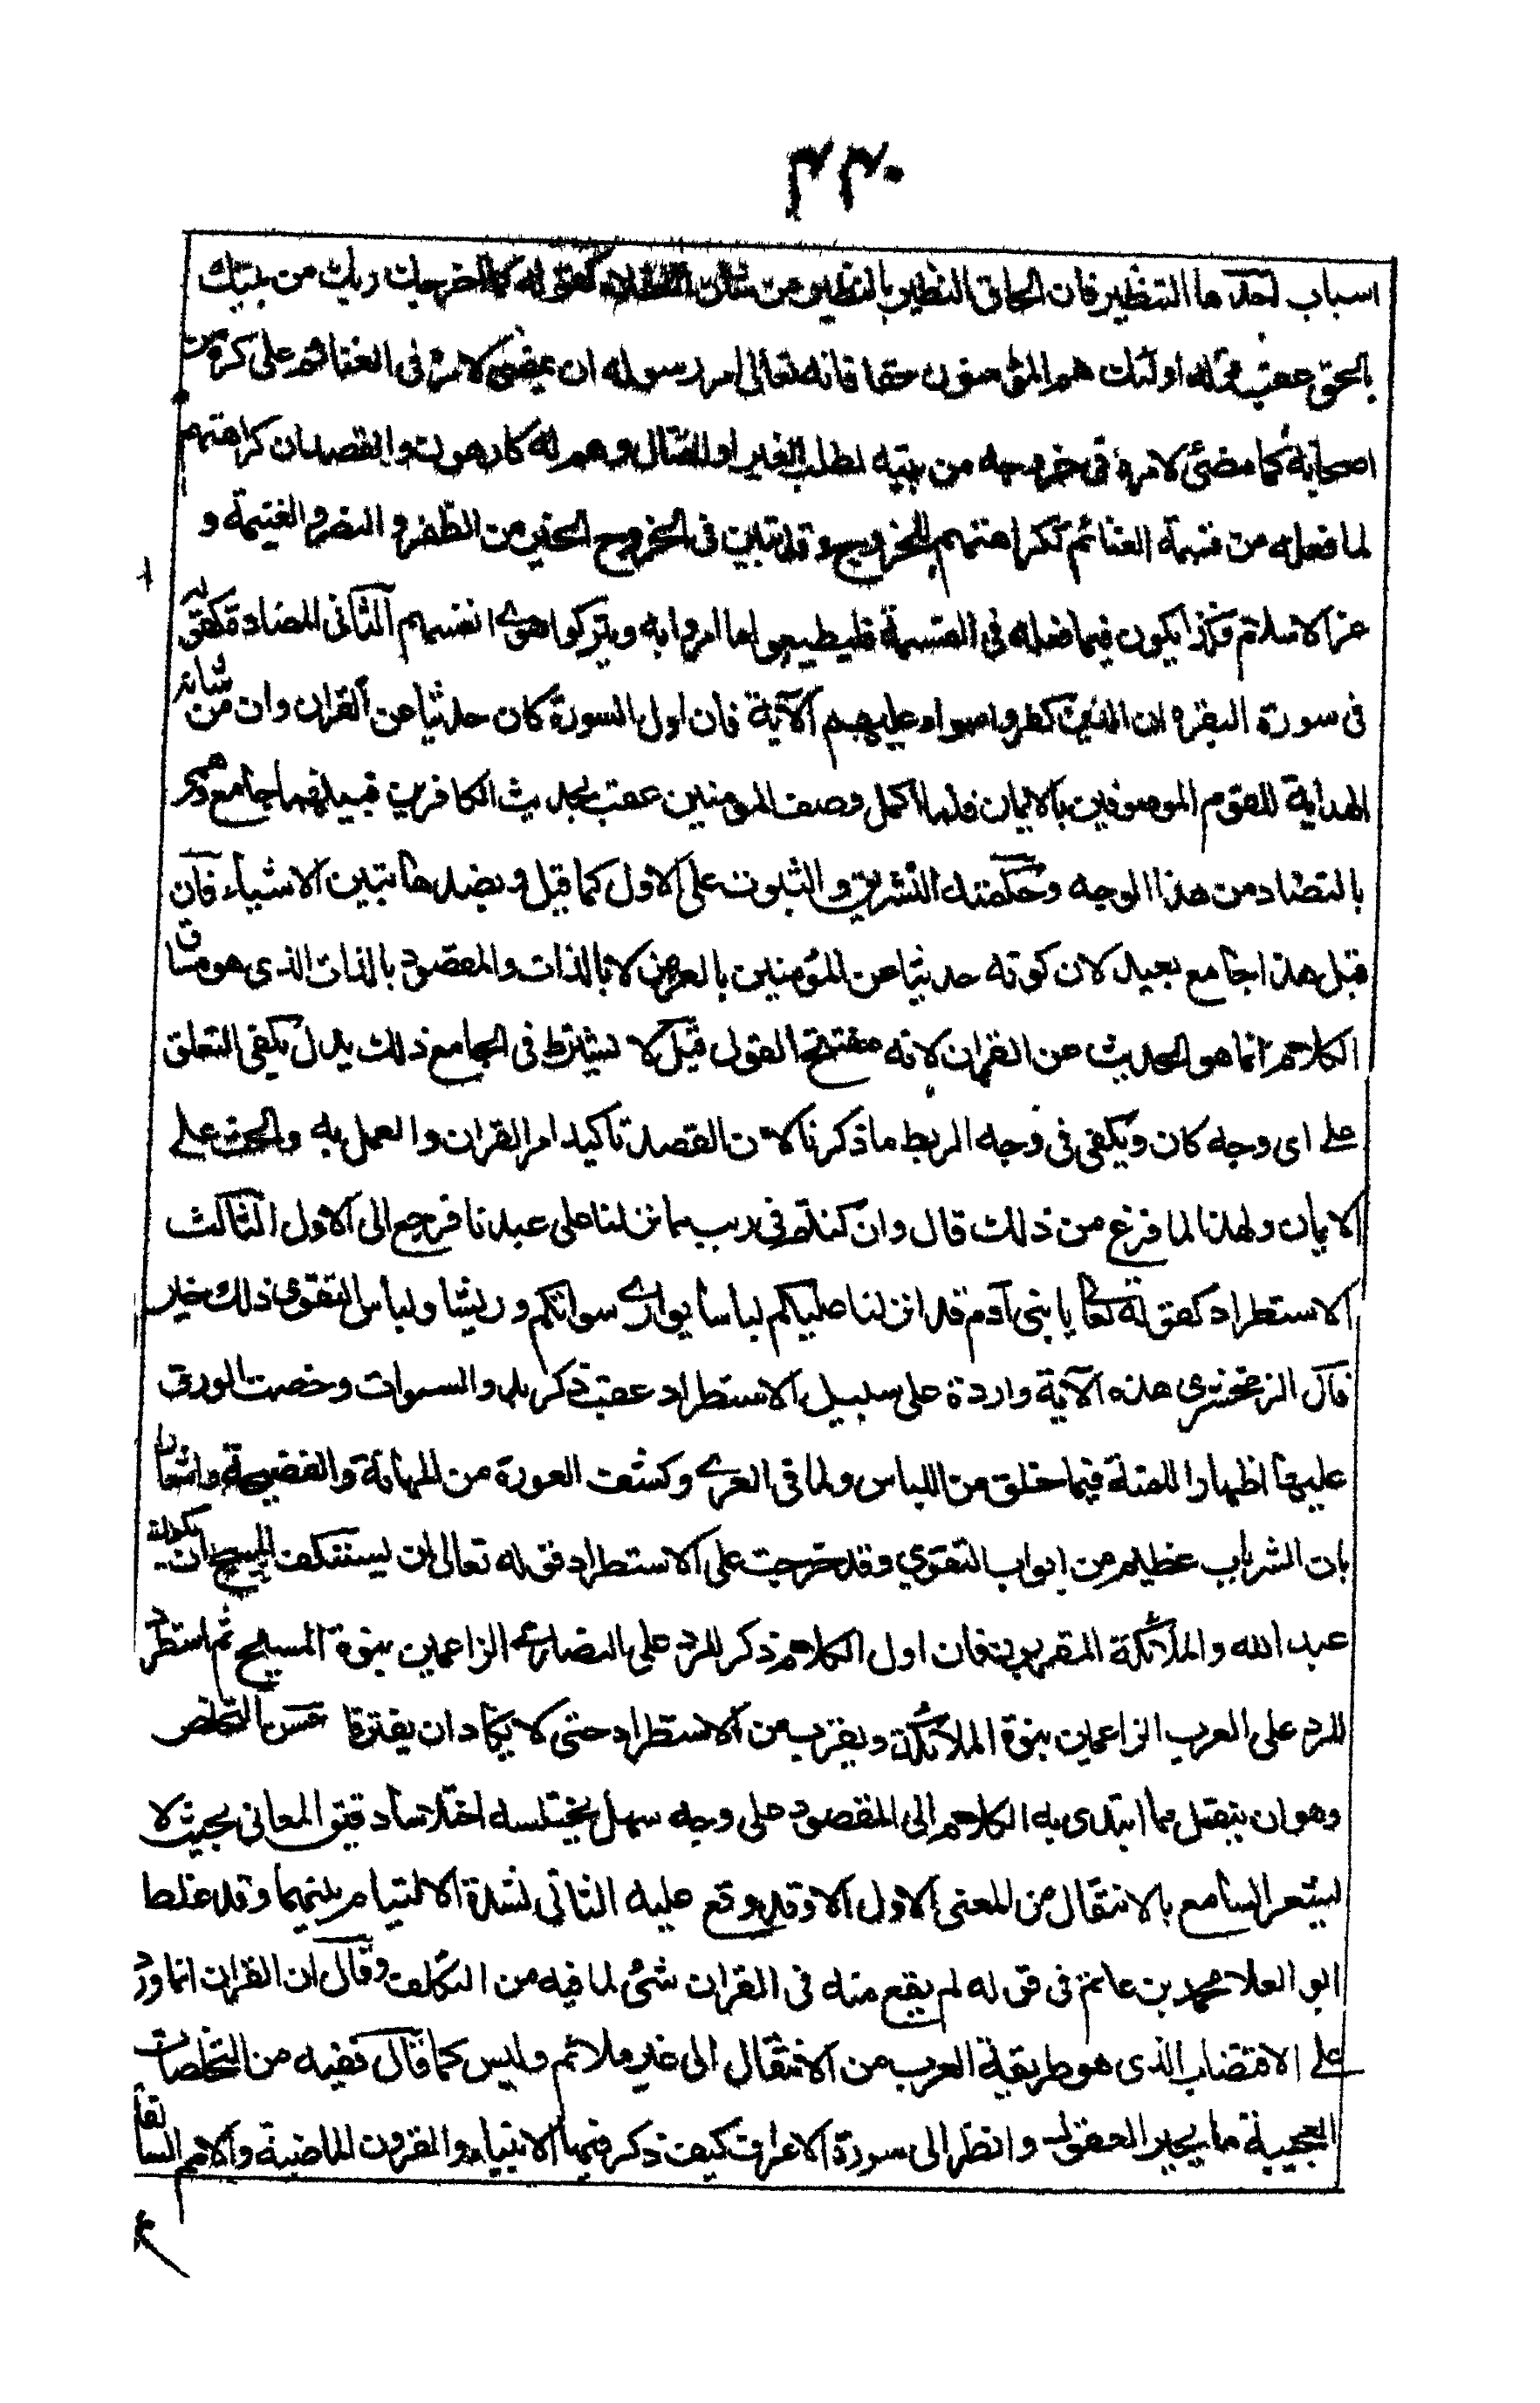 ٣٣٠
اسباب احدها التنظير فان الحاق النظير بالنظير من شان العقلاء كقوله كما اخرجك ربك من بيتك
بالحق عقب قوله اولئك هم المؤمنون حقا فانه تعالى امر رسوله ان يمضى لامره فى الغنائم على كره من
اصحابه كما مضى لامره فى خروجه من بيته لطلب العير او للقتال وهم له كارهون والقصد ان كراهتهم
لما فعله من قسمة الغنائم ككراهتهم للخروج وقد تبين فى الخروج الخير من الظفر و النصر والغنيمة و
عز الاسلام فكذا يكون فيما فعله فى القسمة فليطيعوا ما امروا به ويتركوا هوى انفسهم الثانى المضادة كقوله
فى سورة البقره ان الذين كفروا سواء عليهم الآية فان اول السورة كان حديثا عن القران وان من شانه
الهداية للقوم الموصوفين بالايمان فلما اكمل وصف المومنين عقب بحديث الكافرين فبينهما جامع وهمى
بالتضاد من هذا الوجه وحكمته التشويق والثبوت على الاول كما قيل وبضدها تتبين الاشياء فان
قيل هذا جامع بعيد لان كونه حديثا عن المؤمنين بالعرض لا بالذات والمقصود بالذات الذى هو مساق
الكلام انما هو الحديث عن القران لانه مفتتح القول قيل لا يشترط فى الجامع ذلك بل يكفى التعلق
على اى وجه كان ويكفى فى وجه الربط ما ذكرنا لان القصد تاكيد امر القران والعمل به والحث على
الايمان ولهذا لما فرغ من ذلك قال وان كنتم فى ريب مما نزلنا على عبدنا فرجع الى الاول الثالث
الاستطراد كقوله تعا يا بنى آدم قد انزلنا عليكم لباسا يوارى سواتكم وريشا ولباس التقوى ذلك خير
قال الزمخشرى هذه الآية واردة على سبيل الاستطراد عقب ذكر بدو السموات وخصف الورق
عليها اظهارا للمنة فيما خلق من اللباس ولما فى العرى وكشف العورة من المهانة والفضيحة واشعارا
بان الستر باب عظيم من ابواب التقوى وقد خرجت على الاستطراد قوله تعالى لن يستنكف المسيح ان يكون
عبد الله والملائكة المقربون فان اول الكلام ذكر للرد على النصارى الزاعمين بنوة المسيح ثم استطرد
للرد على العرب الزاعمين بنوة الملائكة ويقرب من الاستطراد حتى لا يكاد ان يفترقا حسن التخلص
وهو ان ينتقل مما ابتدى به الكلام الى المقصود على وجه سهل يختلسه اختلاسا دقيق المعانى بحيث لا
يشعر السامع بالانتقال من المعنى الاول الا وقد وقع عليه الثانى لشدة الالتيام بينهما وقد غلط
ابو العلا محمد بن غانم فى قوله لم يقع منه فى القران شئ لما فيه من التكلف وقال ان القران انما ورد
على الاقتضاب الذى هو طريقة العرب من الانتقال الى غير ملائم وليس كما قال ففيه من التخلصات
العجيبة ما يحير العقول وانظر الى سورة الاعراف كيف ذكر فيها الانبياء والقرون الماضية والامم السالفة